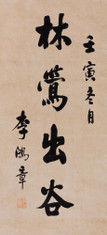 壬寅冬月
林鶯出谷
李鴻章